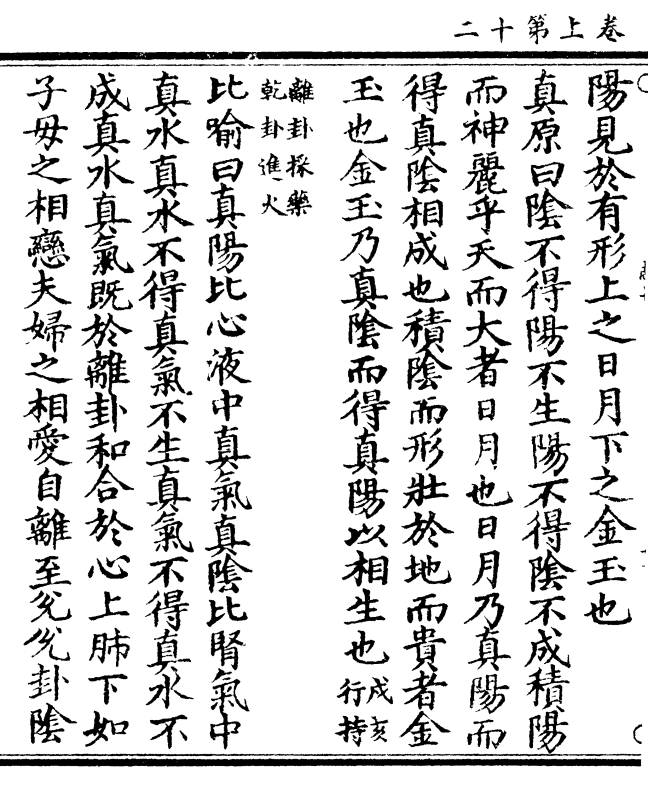 卷上第十二
陽見於有形上之日月下之金玉也
真原曰陰不得陽不生陽不得陰不成積陽
而神麗乎天而大者日月也日月乃真陽而
得真陰相成也積陰而形壯於地而貴者金
玉也金玉乃真陰而得真陽以相生也戌亥
行持
離卦採藥
乾卦進火
比喻曰真陽比心液中真氣真陰比腎氣中
真水真水不得真氣不生真氣不得真水不
成真水真氣既於離卦和合於心上肺下如
子母之相戀夫婦之相愛自離至兊兊卦陰